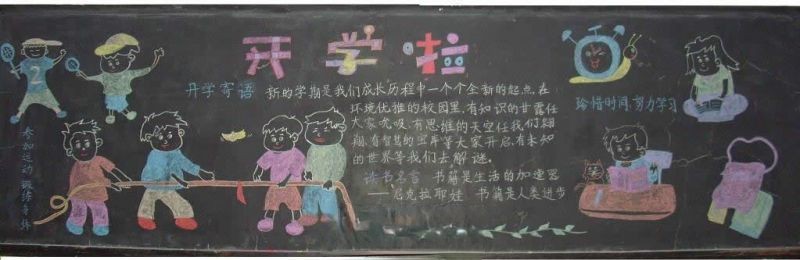 开学啦
开学寄语 新的学期是我们成长历程中一个个全新的起点,在
环境优雅的校园里,有知识的甘露任
大家吮吸,有思维的天空任我们翱
翔,有智慧的宝库等大家开启,有未知
的世界等我们去解谜。
读书名言 书籍是生活的加速器
——尼克拉耶娃 书籍是人类进步
珍惜时间,努力学习
参加运动 锻练身体